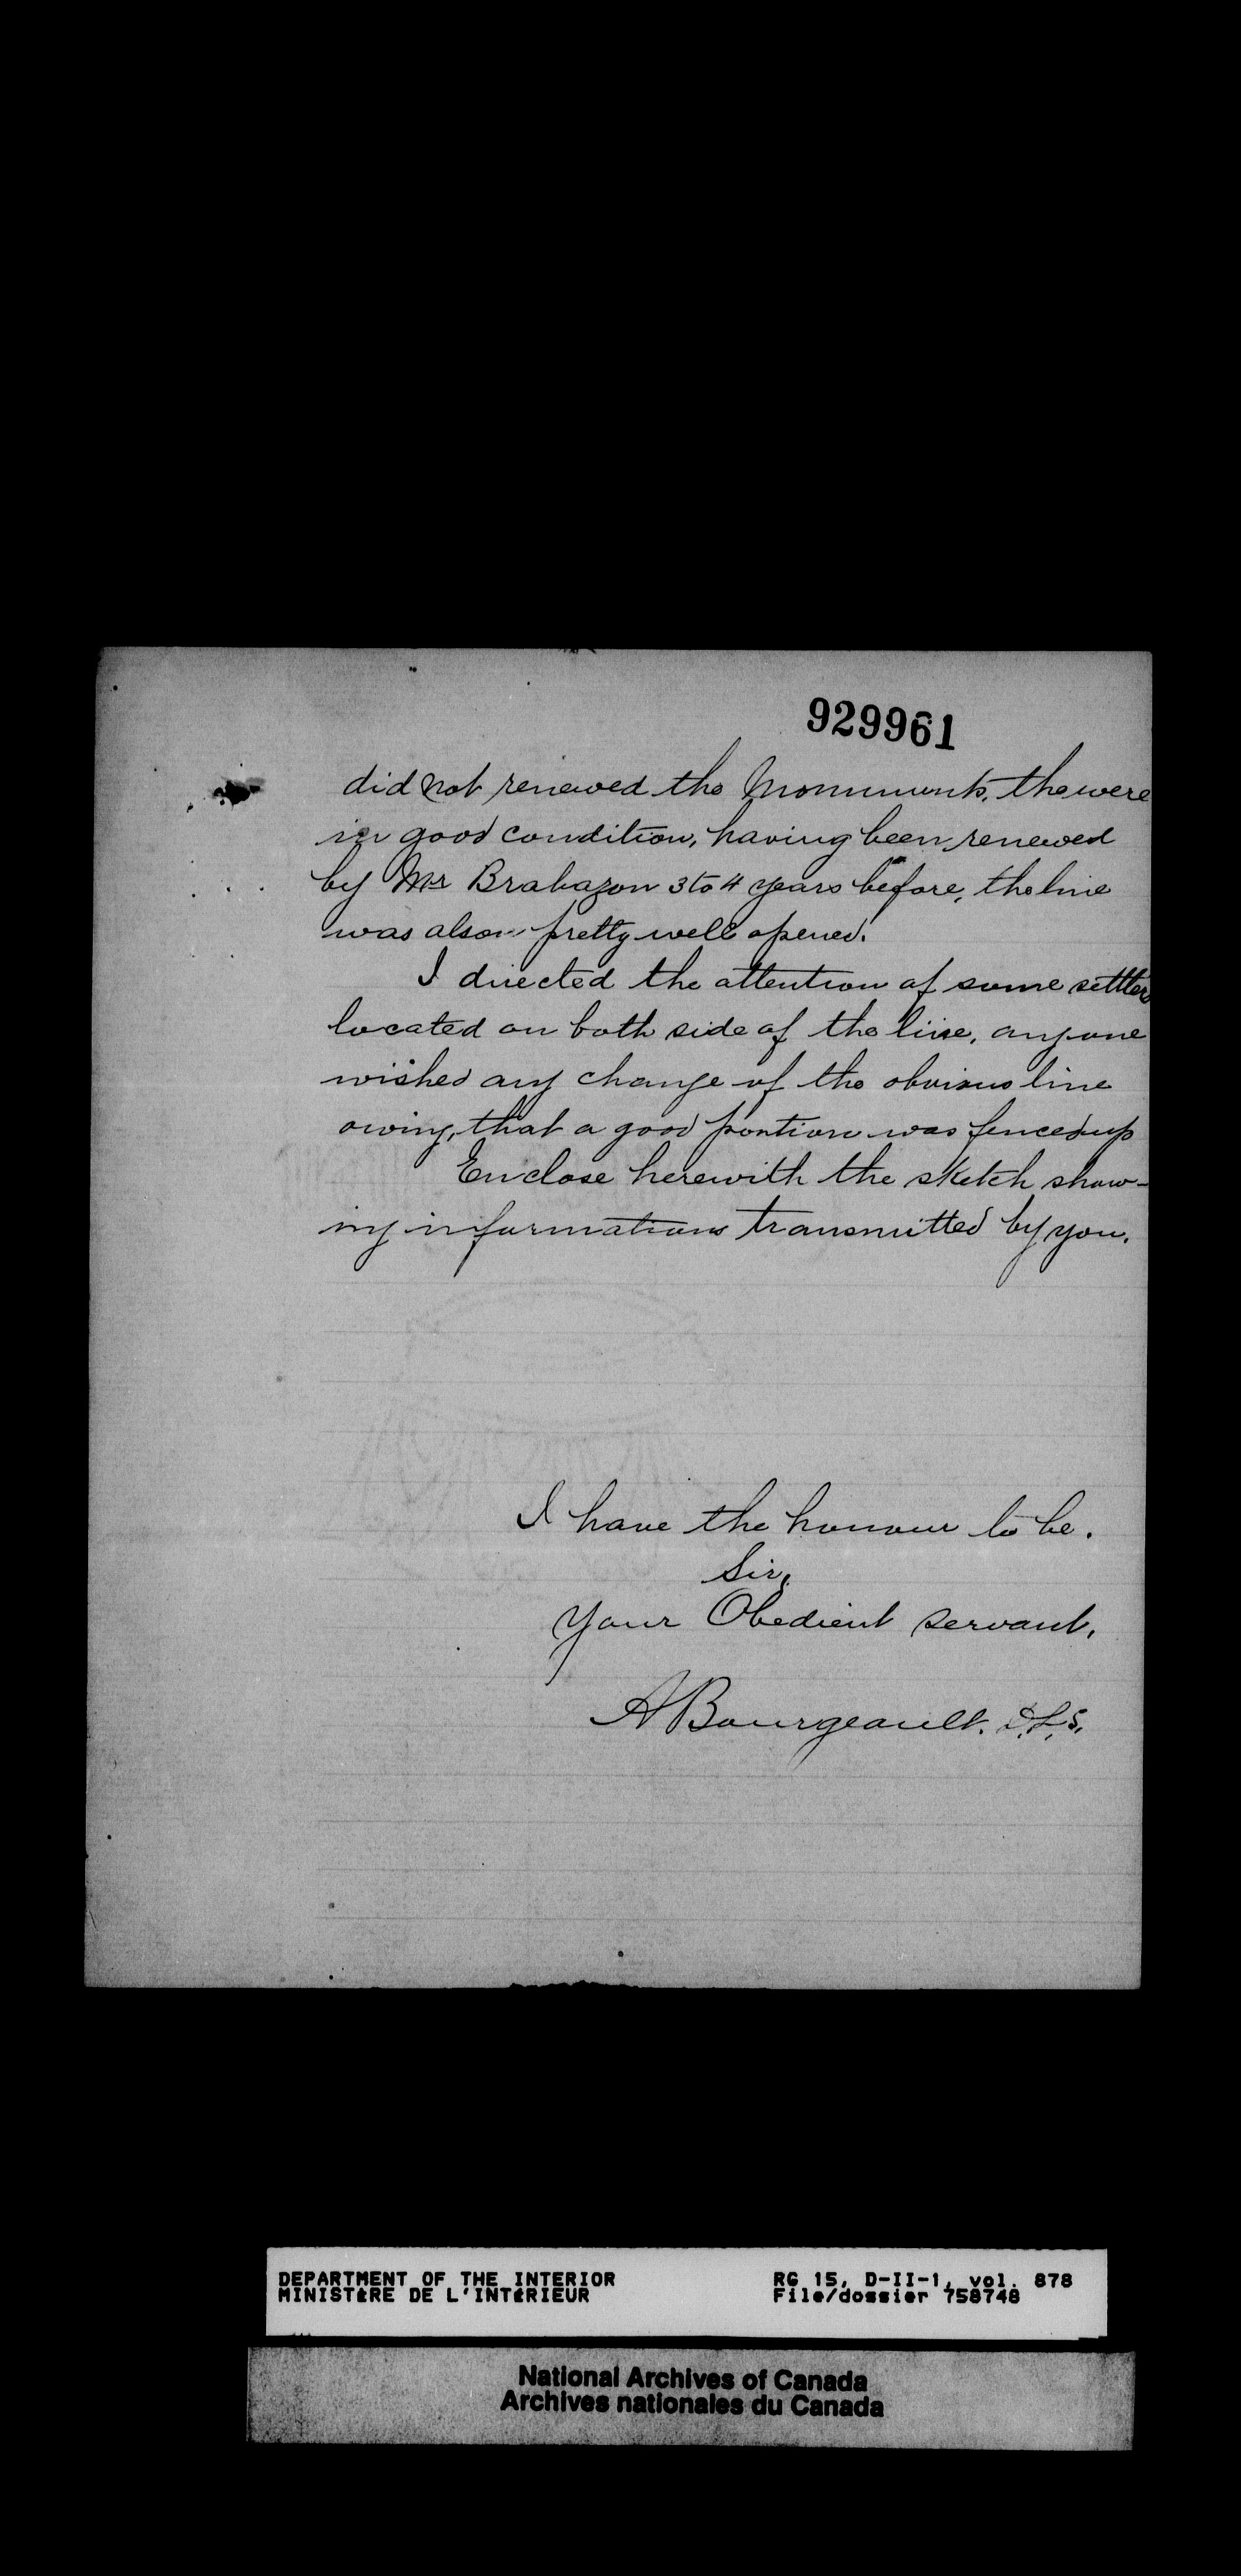 929961
did not renewed the Monuments, the were
in good condition, having been renewed
by Mr Brabazon 3 to 4 years before, the line
was also pretty well opened.
I directed the attention of some settlers
located on both side of the line, anyone
wished any change of the obvious line
owing, that a good portion was fenced up
Enclose herewith the sketch show-
ing informations transmitted by you.
I have the honour to be.
Sir,
Your Obedient servant,
A Bourgeault. D.L.S.
DEPARTMENT OF THE INTERIOR RG 15, D-II-1, vol. 878
MINISTÈRE DE L'INTÉRIEUR File/dossier 758748
National Archives of Canada
Archives nationales du Canada